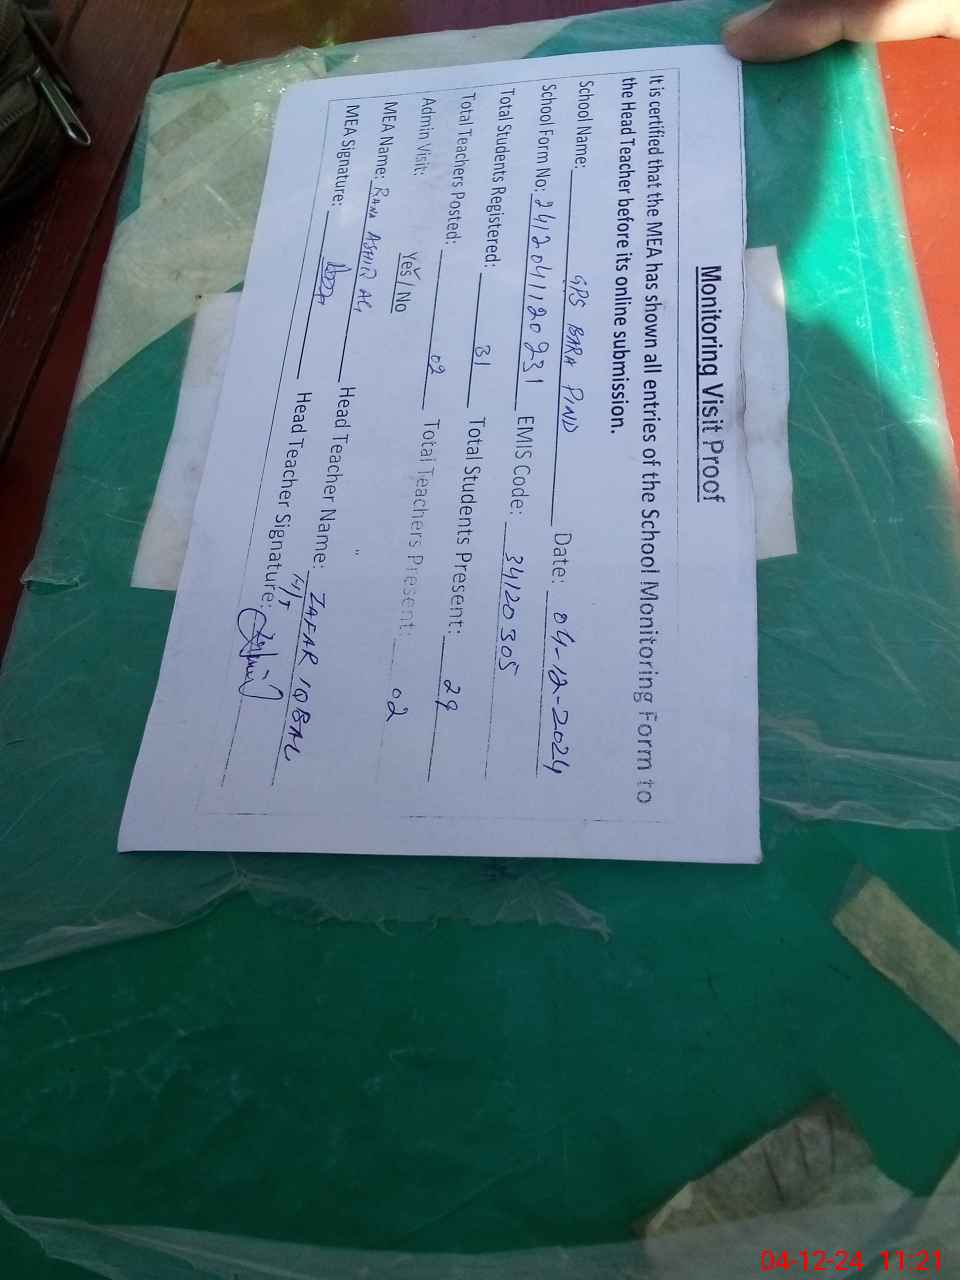 Monitoring Visit Proof
It is certified that the MEA has shown all entries of the School Monitoring Form to
the Head Teacher before its online submission.
School Name: GPS BARA PIND Date: 04-12-2024
School Form No: 2412041120231 EMIS Code: 34120305
Total Students Registered: 31 Total Students Present: 29
Total Teachers Posted: 02 Total Teachers Present: 02
Admin Visit: Yes / No
MEA Name: RANA ASHIQ Head Teacher Name: ZAFAR IQBAL
MEA Signature: Head Teacher Signature:
04-12-24 11:21